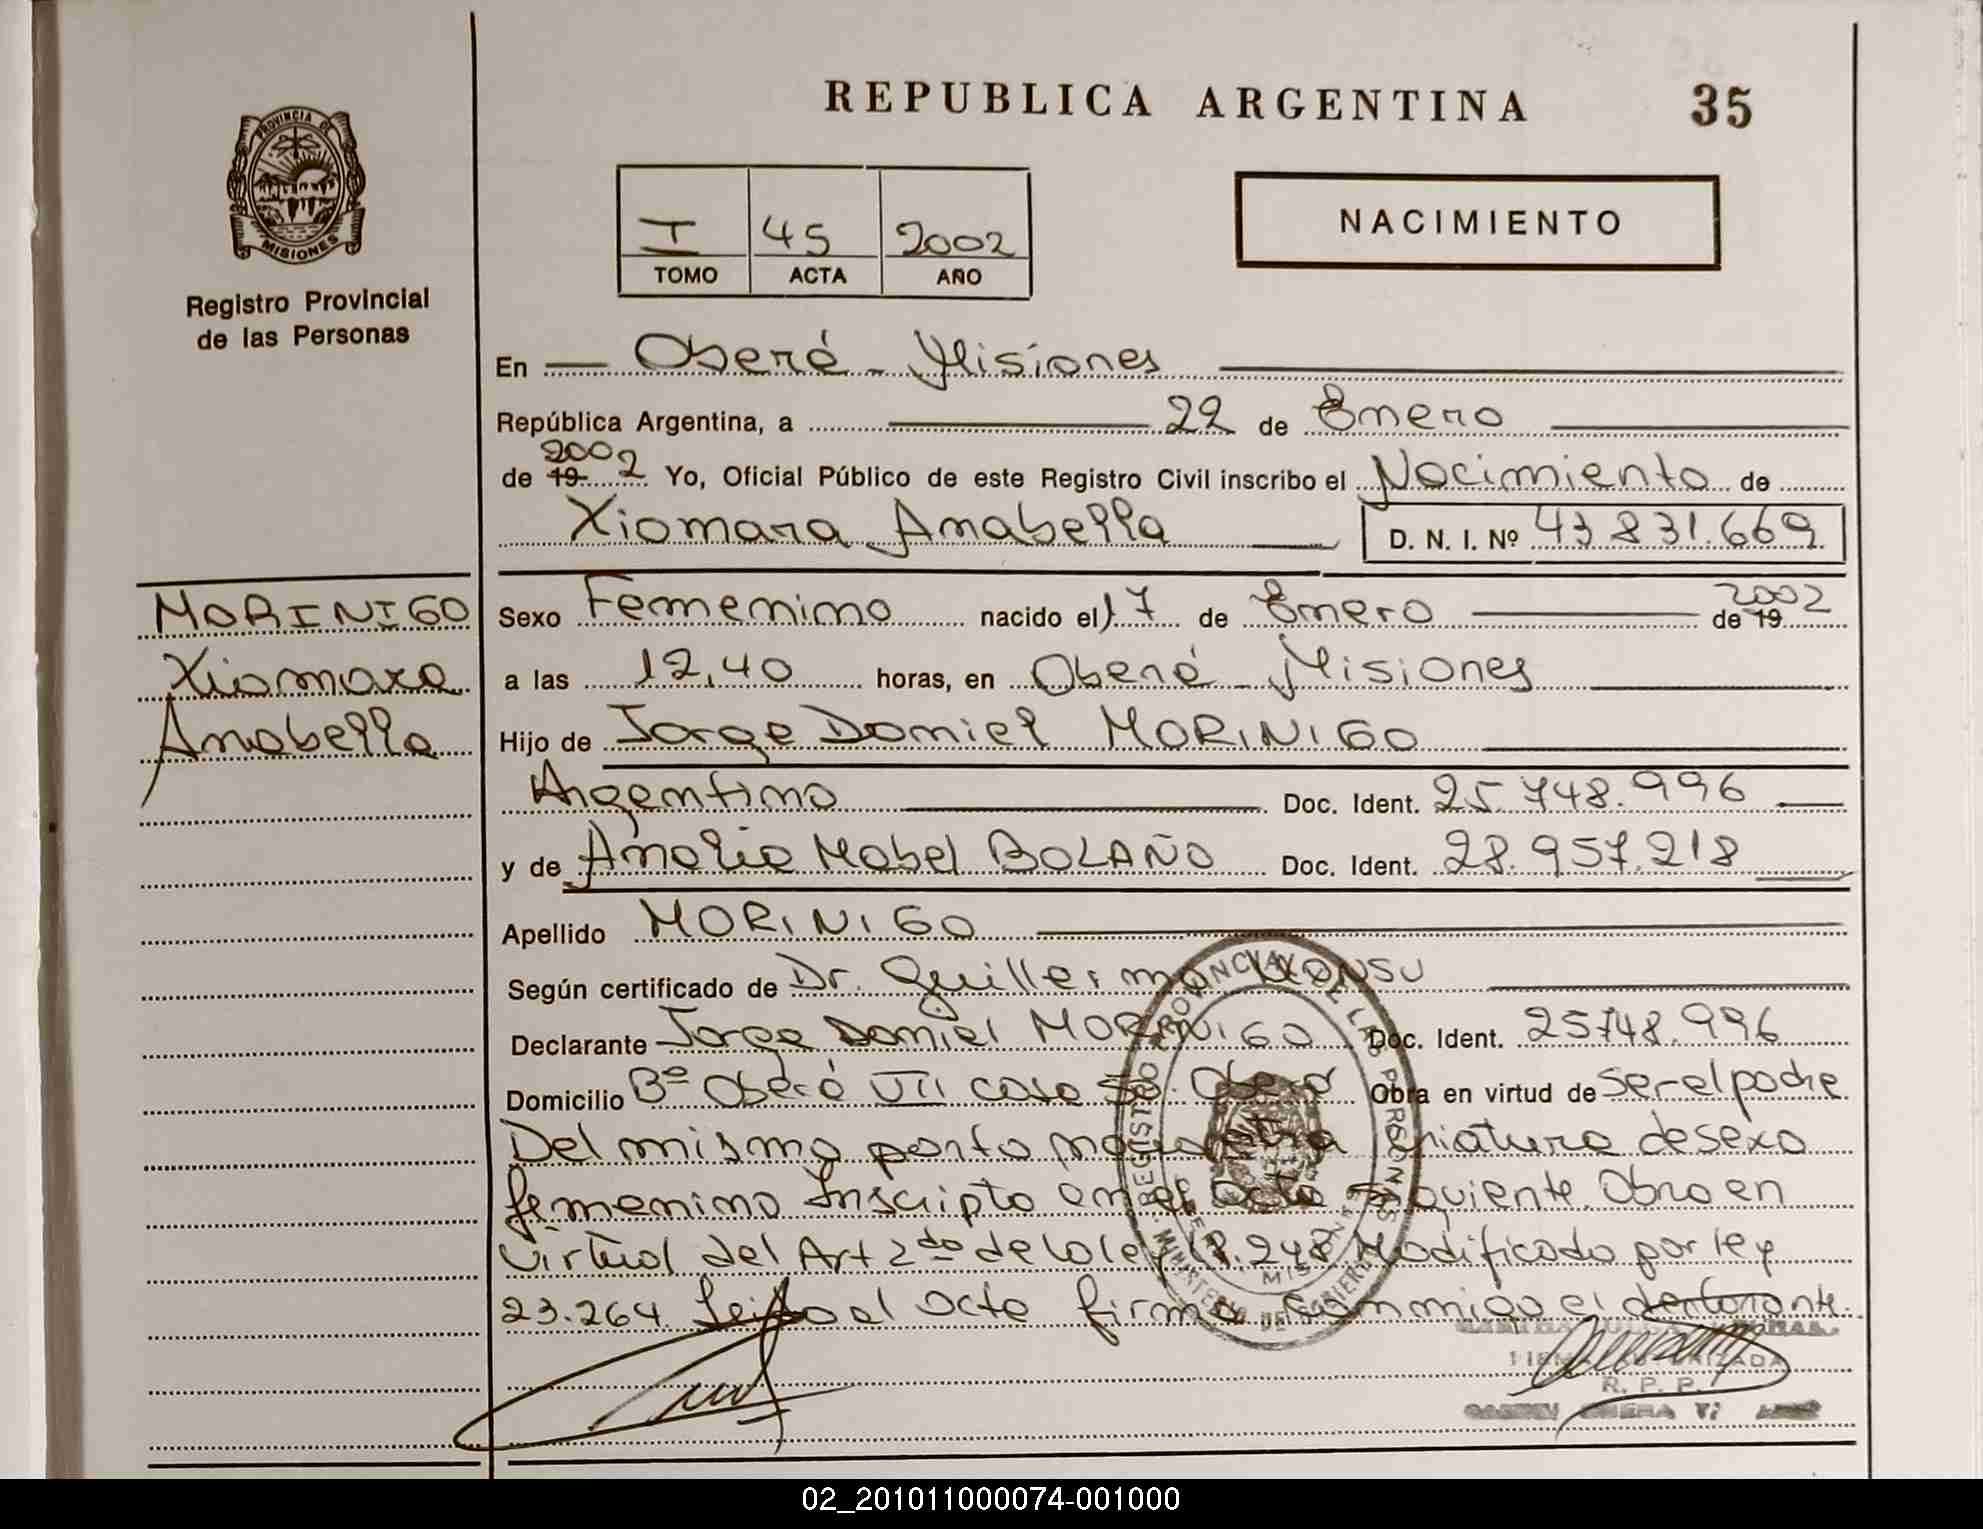 REPUBLICA ARGENTINA 35
PROVINCIA DE
MISIONES
Registro Provincial
de las Personas
I 45 2002
TOMO ACTA AÑO
NACIMIENTO
En Oberá - Misiones
República Argentina, a 22 de Enero
de 19 2002 Yo, Oficial Público de este Registro Civil inscribo el Nacimiento de
Xiomara Anabella D. N. I. Nº 43 831.669
MORINIGO
Xiomara
Anabella
Sexo Femenino nacido el 17 de Enero de 19 2002
a las 12,40 horas, en Oberá - Misiones
Hijo de Jorge Daniel MORINIGO
Argentino Doc. Ident. 25.748.996
y de Amalia Mabel BOLAÑO Doc. Ident. 28.957.218
Apellido MORINIGO
Según certificado de Dr. Guillermo
Declarante Jorge Daniel MORINIGO Doc. Ident. 25748.996
Domicilio Bº Oberá VII casa 58. Oberá Obra en virtud de ser el padre
Del mismo parto otra criatura de sexo
femenino Inscripto en el acta siguiente. Obro en
virtud del Art 2do de la ley 18.248 Modificado por ley
23.264 Leido el acta firma conmigo el declarante.
REGISTRO PROVINCIAL DE LAS PERSONAS
MINISTERIO DE GOBIERNO
MISIONES
FIRMA AUTORIZADA
R. P. P.
02_201011000074-001000